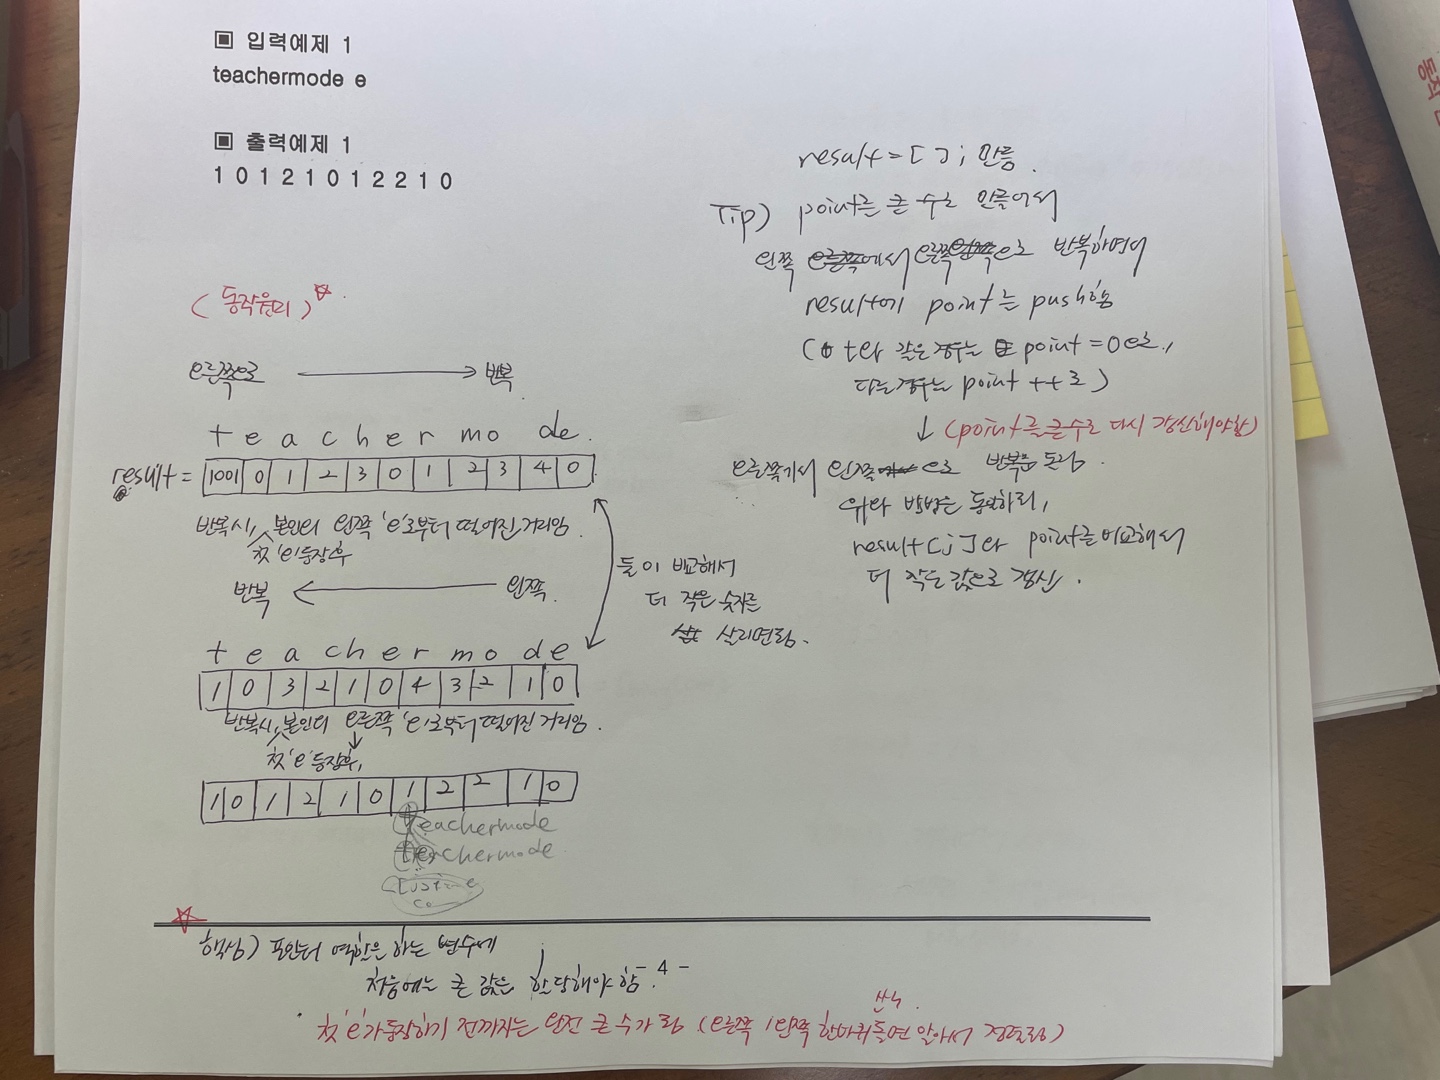 ▣ 입력예제 1
teachermode e
▣ 출력예제 1
1 0 1 2 1 0 1 2 2 1 0
result = [ ] ; 만듦.
Tip) point를 큰 수로 만들어서
왼쪽에서 오른쪽으로 반복하면서
result에 point를 push함
(t와 같은 경우는 point = 0으로,
다른경우는 point ++로)
↓ (point를 큰수로 다시 갱신해야함)
오른쪽에서 왼쪽으로 반복문 돌림.
위와 방법은 동일하되,
result[i]와 point를 비교해서
더 작은 값으로 갱신.
(동작원리)
오른쪽으로 → 반복
t e a c h e r m o d e.
result = 1001 0 1 2 3 0 1 2 3 4 0
반복시, 본인의 왼쪽 'e'로부터 떨어진 거리임.
첫 'e' 등장후
반복 ← 왼쪽
둘이 비교해서
더 작은 숫자를
살리면됨.
t e a c h e r m o d e
1 0 3 2 1 0 4 3 2 1 0
반복시, 본인의 오른쪽 'e'로부터 떨어진 거리임.
첫 'e' 등장후,
1 0 1 2 1 0 1 2 2 1 0
teachermode
teachermode
핵심) 포인터 역할을 하는 변수에
처음에는 큰 값을 할당해야 함.
- 4 -
첫 'e'가 등장하기 전까지는 완전 큰 수가 됨 (오른쪽 / 왼쪽 한바퀴 돌면 알아서 정리됨)